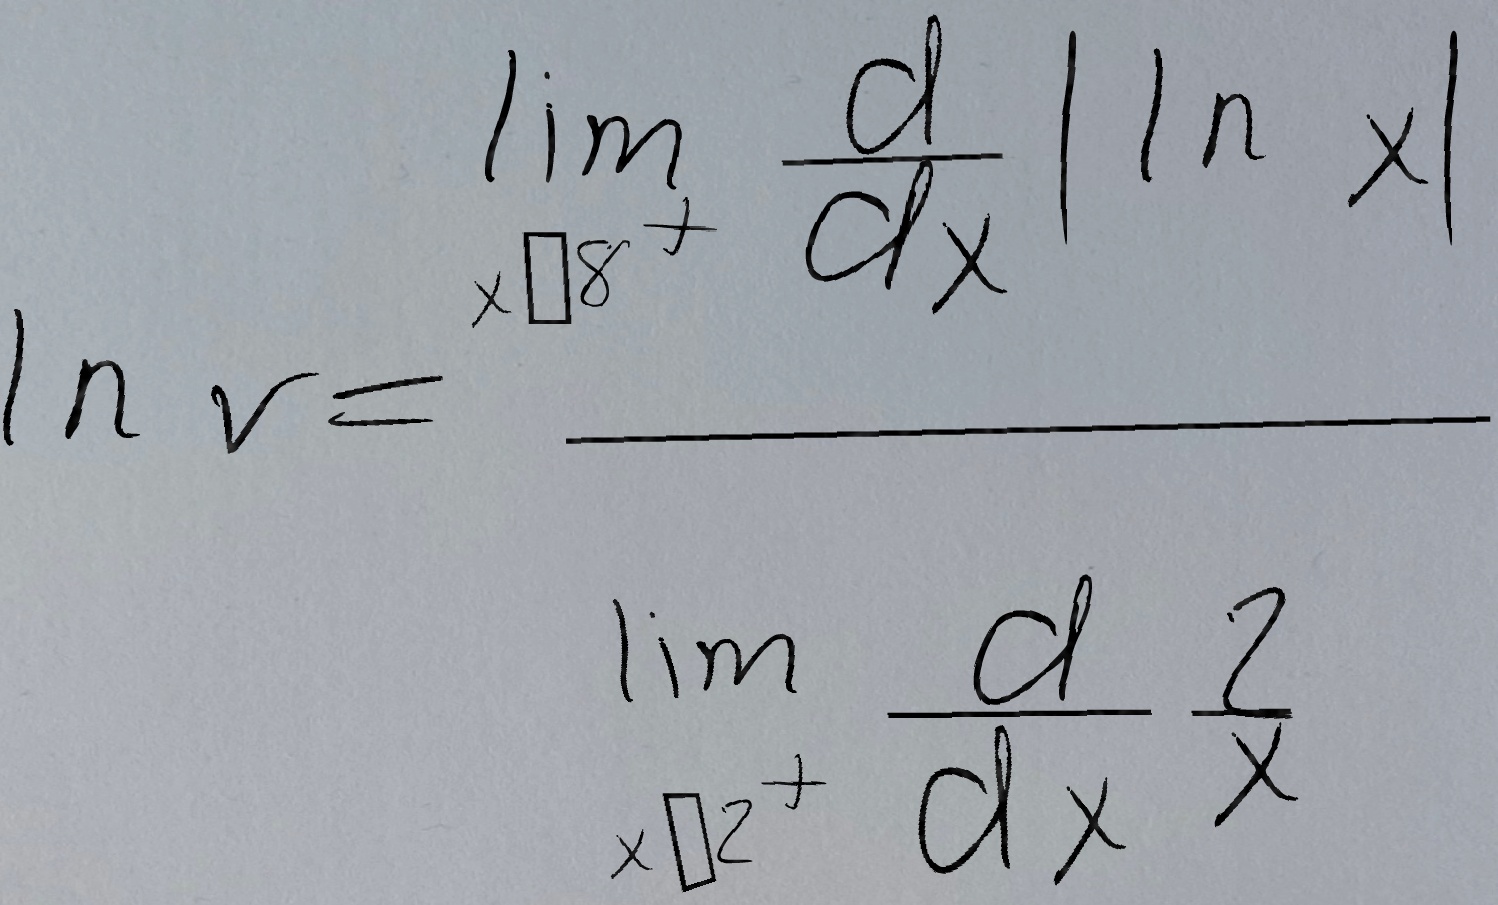 ln v = \frac{\lim_{x □ 8^+} \frac{d}{dx} |ln x|}{\lim_{x □ 2^+} \frac{d}{dx} \frac{2}{x}}